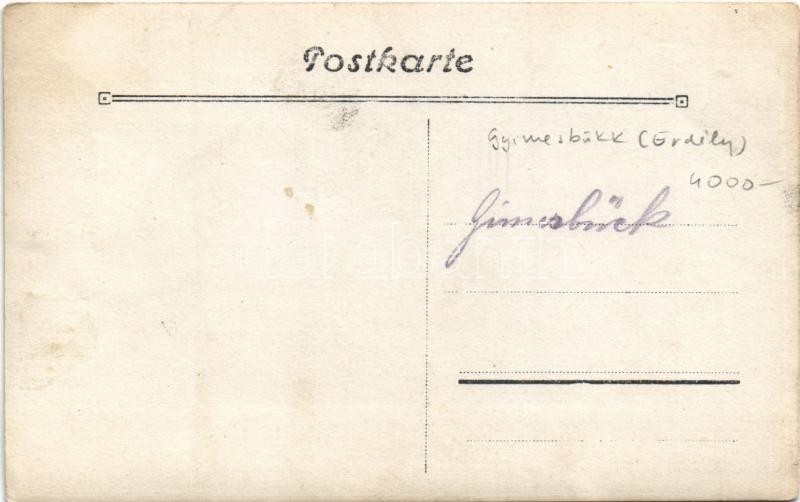 Postkarte
Gyimesbükk (Erdély)
4000-
Gimesbück